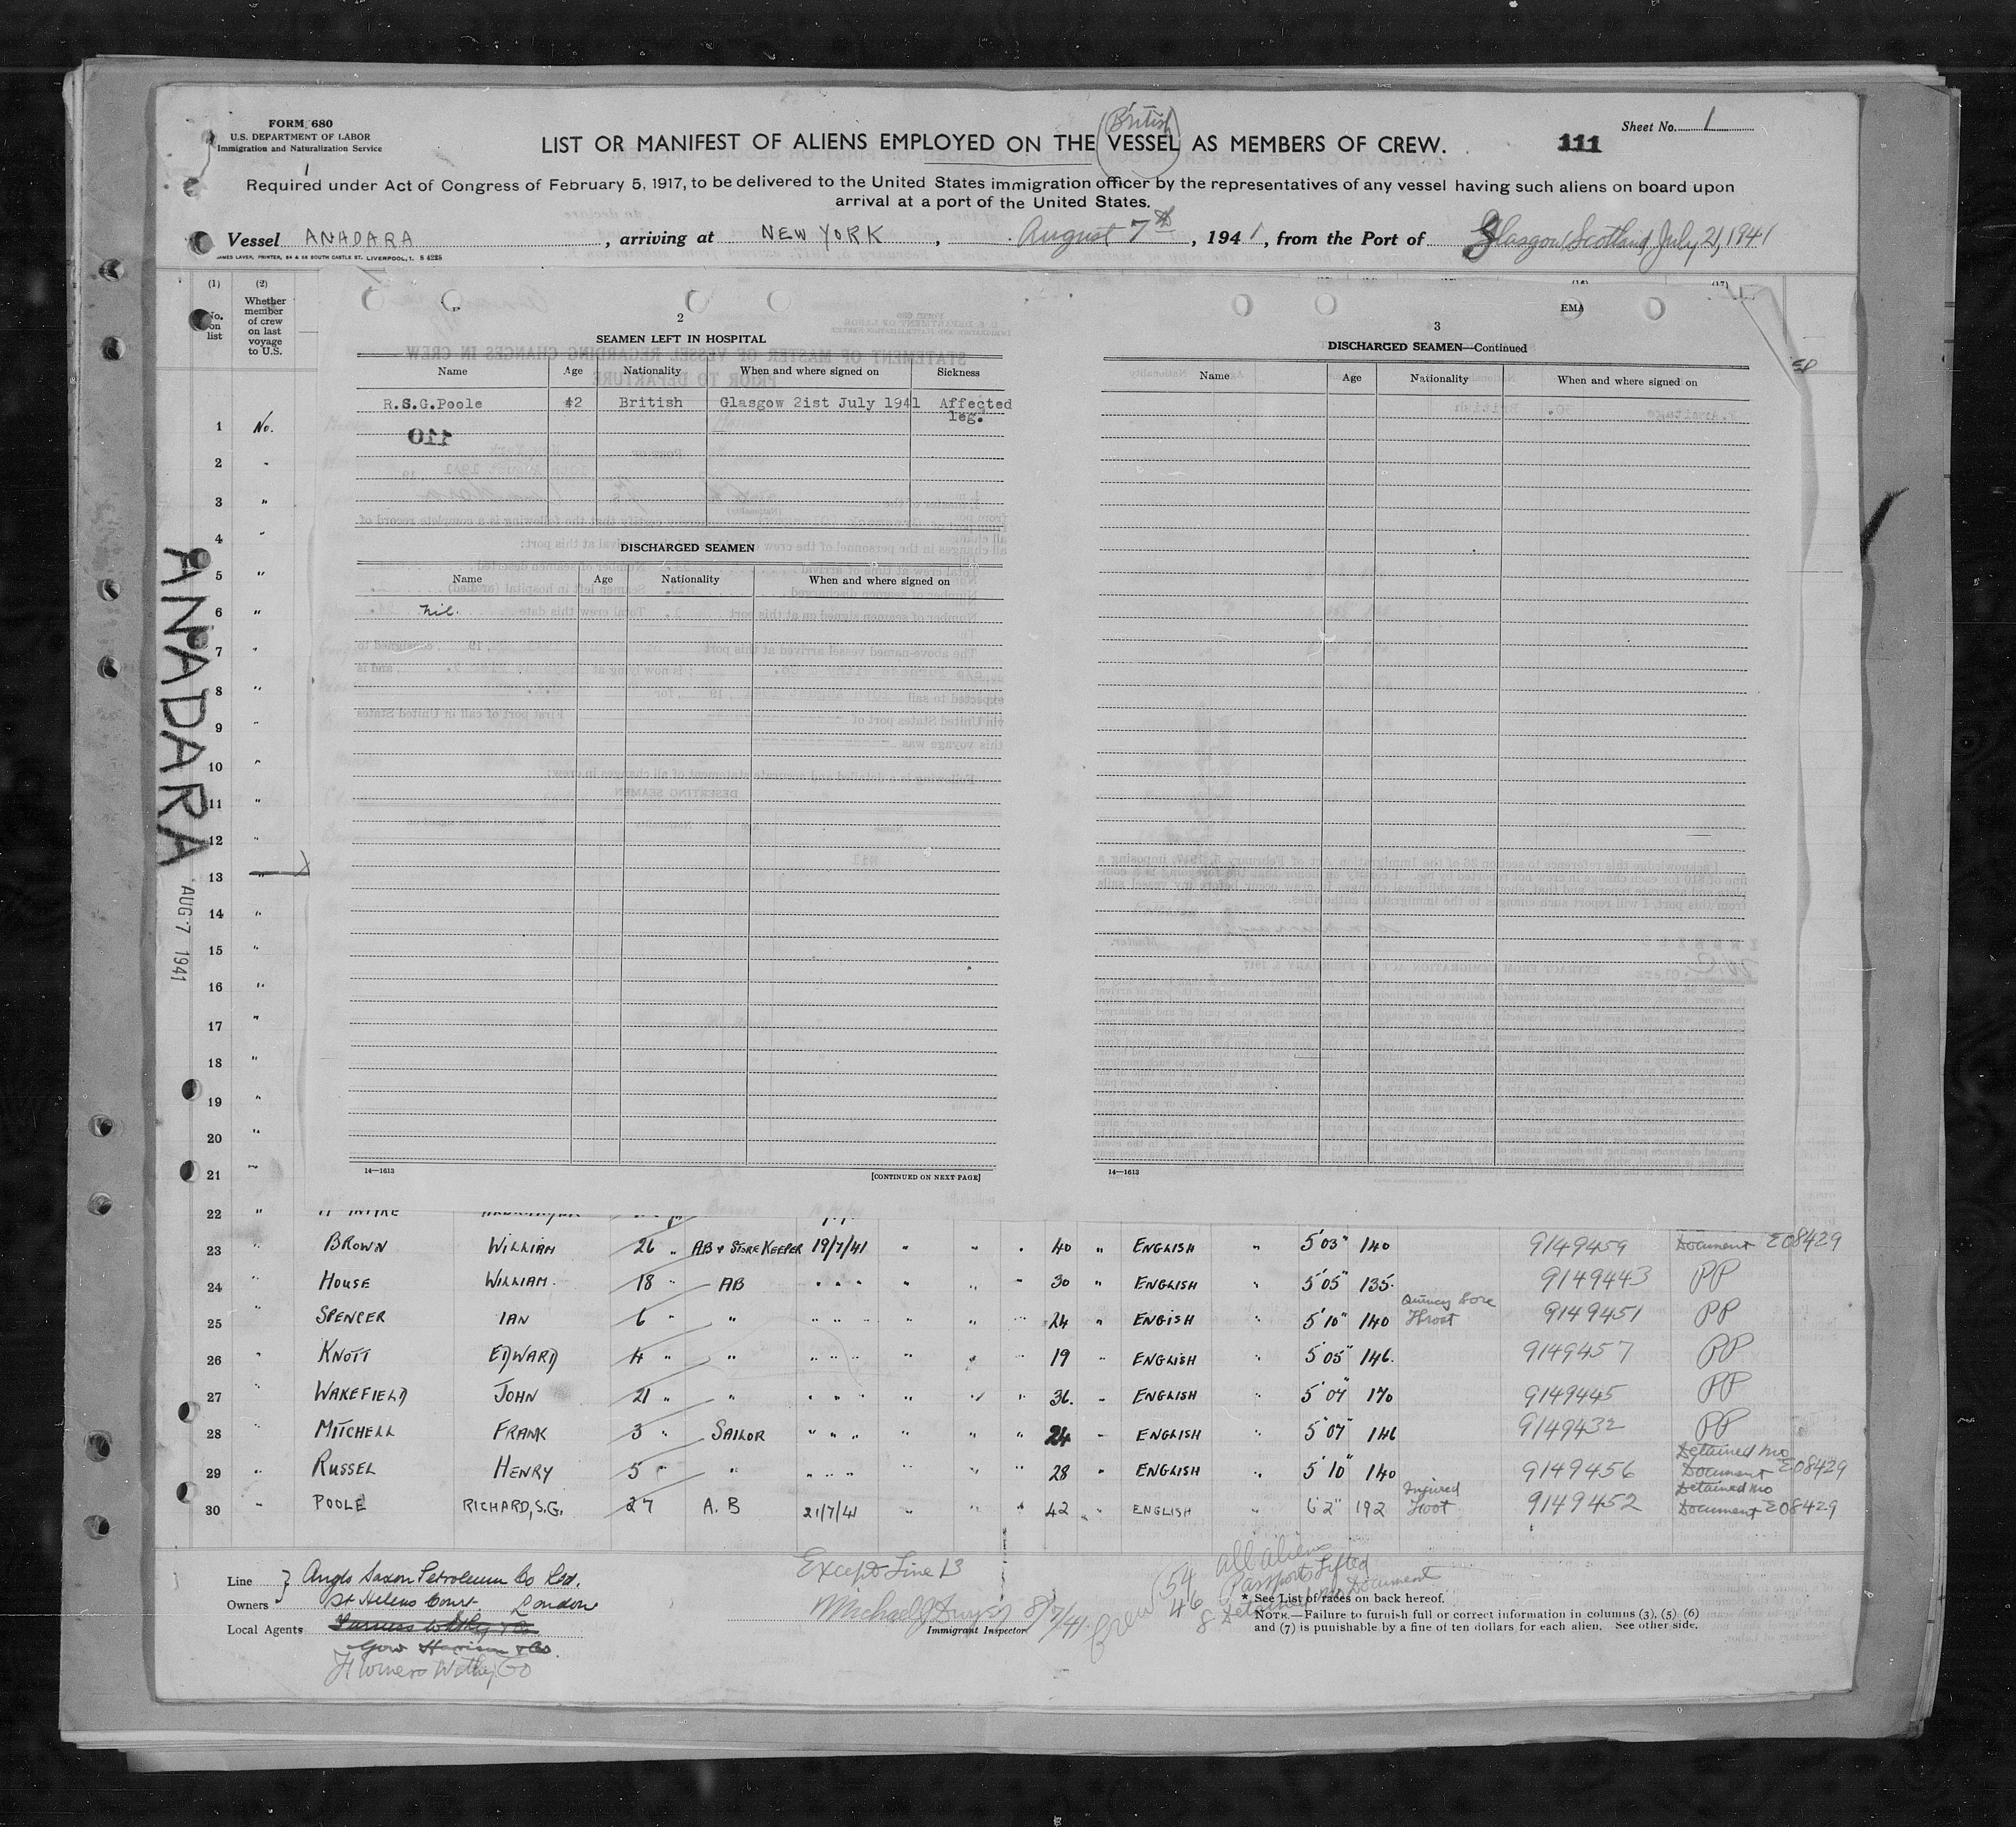 FORM 680
U.S. DEPARTMENT OF LABOR
Immigration and Naturalization Service
LIST OR MANIFEST OF ALIENS EMPLOYED ON THE VESSEL AS MEMBERS OF CREW.
British
111
Sheet No. 1
Required under Act of Congress of February 5, 1917, to be delivered to the United States immigration officer by the representatives of any vessel having such aliens on board upon
arrival at a port of the United States.
Vessel ANADARA, arriving at NEW YORK, August 7th, 1941, from the Port of Glasgow, Scotland, July 21, 1941
JAMES LAVER, PRINTER, 54 & 56 SOUTH CASTLE ST. LIVERPOOL, 1. S 4225
(1) (2)
No. on list
Whether member of crew on last voyage to U.S.
2
SEAMEN LEFT IN HOSPITAL
Name Age Nationality When and where signed on Sickness
R.S.G.Poole 42 British Glasgow 21st July 1941 Affected
leg.
110
DISCHARGED SEAMEN
Name Age Nationality When and where signed on
Nil.
14—1613 [CONTINUED ON NEXT PAGE]
EMA
3
DISCHARGED SEAMEN—Continued
Name Age Nationality When and where signed on
14—1613
1 No.
2 "
3 "
4 "
5 "
6 "
7 "
8 "
9 "
10 "
11 "
12 "
13 "
14 "
15 "
16 "
17 "
18 "
19 "
20 "
21 "
22 "
23 " BROWN WILLIAM 26 " AB & STORE KEEPER 19/7/41 " " " 40 " ENGLISH " 5'03" 140 9149459 Document E08429
24 " HOUSE WILLIAM. 18 " AB " " " " " " 30 " ENGLISH " 5'05" 135. 9149443 PP
25 " SPENCER IAN 6 " " " " " " " " 24 " ENGISH " 5'10" 140 Quincy Sore Throat 9149451 PP
26 " KNOTT EDWARD 4 " " " " " " " " 19 " ENGLISH " 5'05" 146. 9149457 PP
27 " WAKEFIELD JOHN 21 " " " " " " " " 36. " ENGLISH " 5'07" 170 9149445 PP
28 " MITCHELL FRANK 3 " SAILOR " " " " " " 24 " ENGLISH " 5'07" 146 9149432 PP
29 " RUSSEL HENRY 5 " " " " " " " " 28 " ENGLISH " 5'10" 140 9149456 Detained No Document E08429
30 " POOLE RICHARD, S.G. 27 A.B 21/7/41 " " " 42 " " ENGLISH " 6'2" 192 Injured Foot 9149452 Detained No Document E08429
ANADARA
AUG 7 1941
Line } Anglo Saxon Petroleum Co Ltd.
Owners St Helens Court. London
Local Agents Furness Withy & Co
Gow Harrison & Co.
Furness Withy Co
Except Line 13
8/7/41
Immigrant Inspector
Crew
54
46
8
all aliens
Passports Lifted
Detained No Document
* See List of races on back hereof.
NOTE.—Failure to furnish full or correct information in columns (3), (5) (6)
and (7) is punishable by a fine of ten dollars for each alien. See other side.